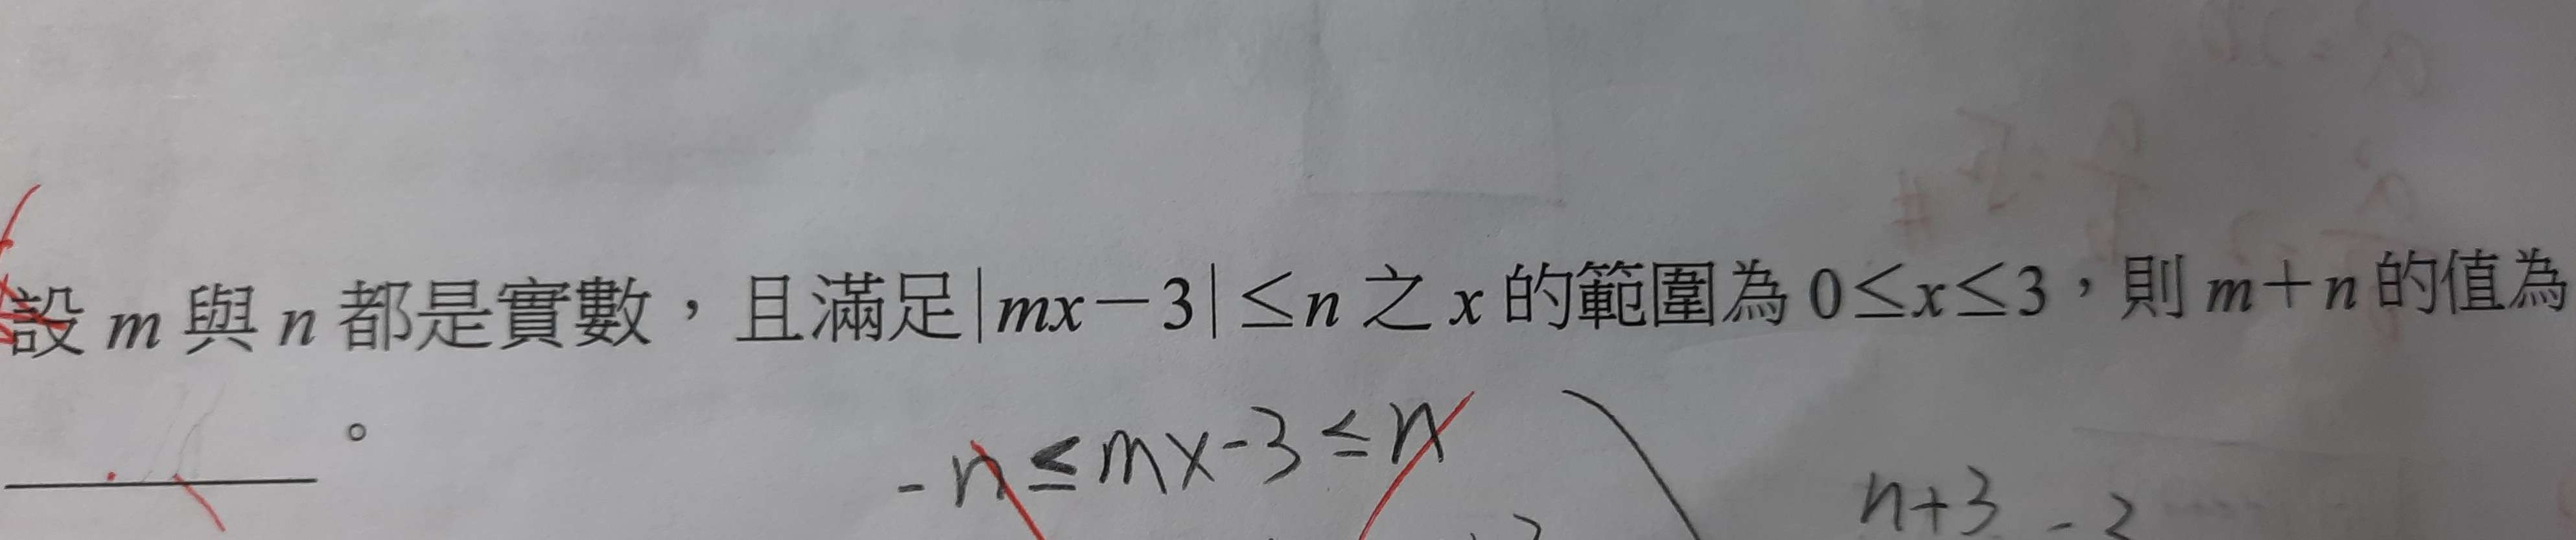 設 m 與 n 都是實數，且滿足|mx－3|≤n 之 x 的範圍為 0≤x≤3，則 m＋n 的值為
＿＿＿＿。
-n≤mx-3≤n
n+3